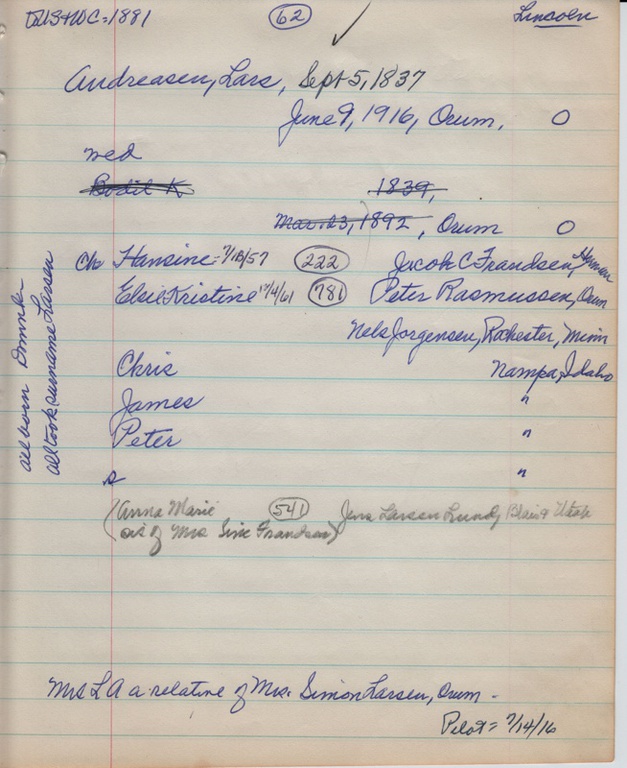 DUS+WC=1881 62 Lincoln
Andreasen, Lars, Sept 5, 1837
June 9, 1916, Orum, O
med
Bodil K 1839,
Mar. 23, 1892, Orum O
Ch Hansine = 7/18/57 222 Jacob C Frandsen, Herman
Elsie Kristine 12/4/61 781 Peter Rasmussen, Orum
Nels Jorgensen, Rochester, Minn
Chris Nampa, Idaho
James "
Peter "
s "
(Anna Marie 541 Jens Larsen Lund, Blair & Utah
sis of Mrs Sine Frandsen)
all born Denmark
all took surname Larsen
Mrs L A a relative of Mrs. Simon Larsen, Orum -
Pilot = 7/14/16